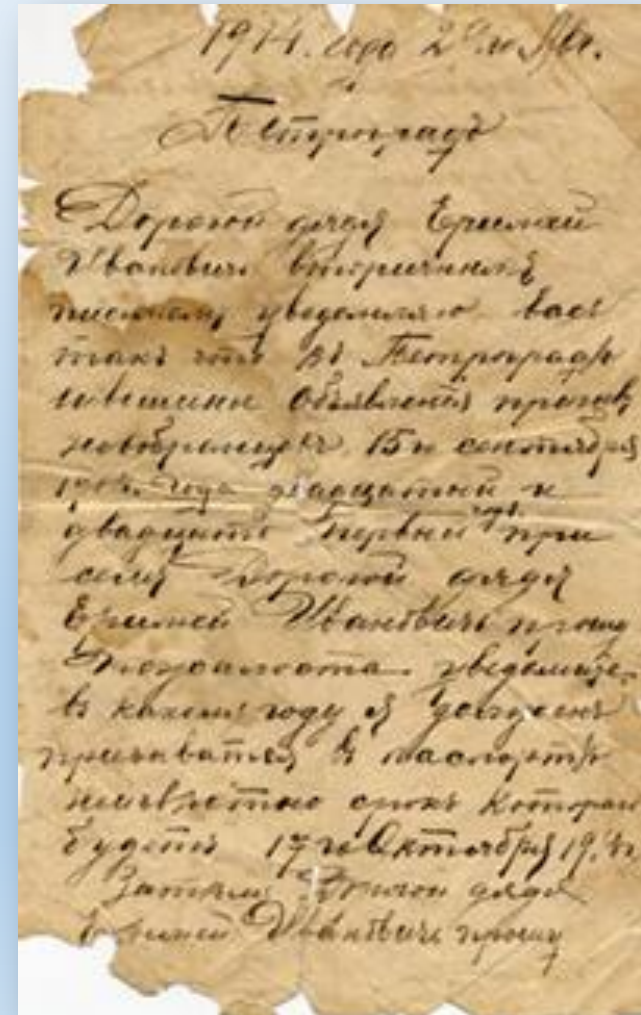 1914. года 2 го
Петроградъ
Дорогой дядя Еримей
Ивановичъ вторичнымъ
письмомъ уведомляю васъ
такъ что въ Петроградѣ
объявленія призывъ
новобранцевъ 15 го сентября
года двадцатый и
двадцать первый годъ при
семъ Дорогой дядя
Еримей Ивановичъ прошу
уведомите
въ какомъ году я долженъ
призыватся в паспортѣ
неизвѣстно срокъ которой
будетъ 17 го Октября
Затемъ дядя
Еримей Ивановичъ прошу